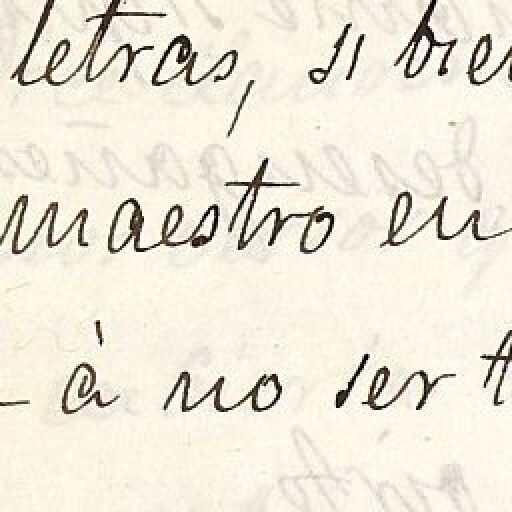 letras, si bien
maestro en
- á no ser t